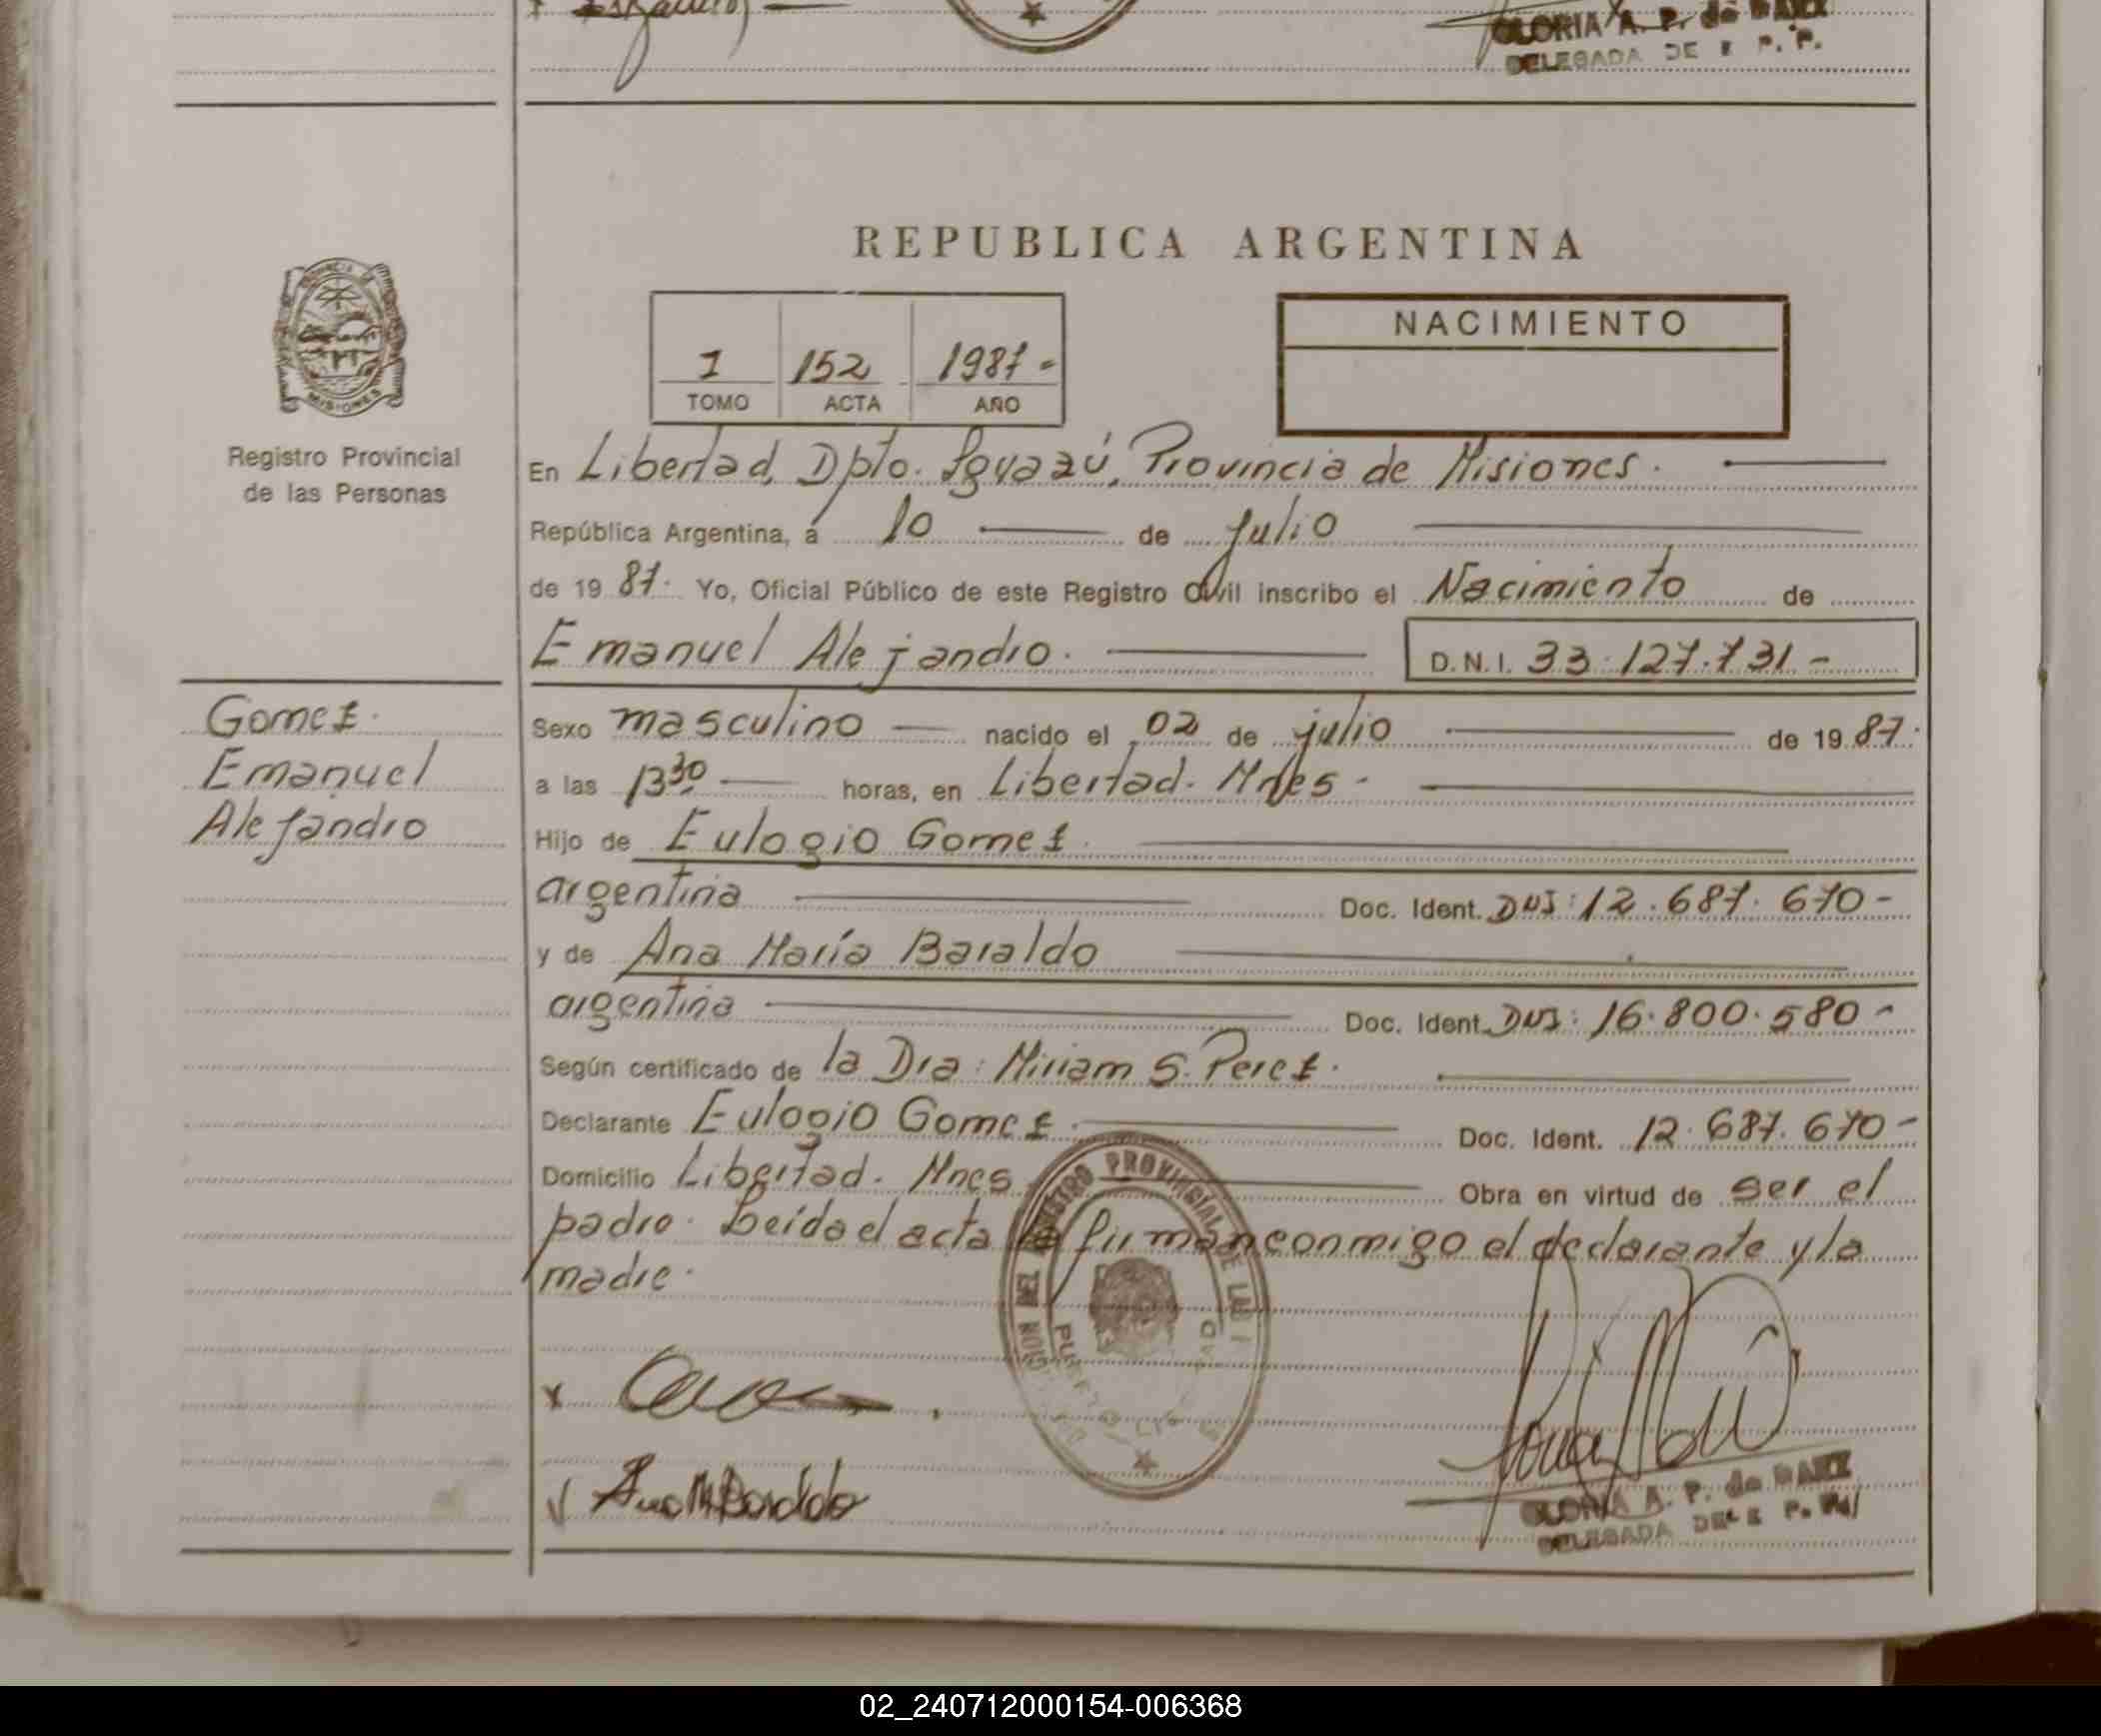 GLORIA A. P. de MARX
DELEGADA DE E P. P.
REPUBLICA ARGENTINA
PROVINCIA DE
MISIONES
Registro Provincial
de las Personas
1 152 1987-
TOMO ACTA AÑO
NACIMIENTO
En Libertad, Dpto. Iguazú, Provincia de Misiones.
República Argentina, á 10 de julio
de 19 87. Yo, Oficial Público de este Registro Civil inscribo el Nacimiento de
Emanuel Alejandro. D.N.I. 33.127.731-
Gomez.
Emanuel
Alejandro
Sexo masculino nacido el 02 de julio de 19 87.
a las 13 30 horas, en Libertad. Mnes-
Hijo de Eulogio Gomez.
argentina Doc. Ident. DNI: 12.687.670-
y de Ana María Baraldo
argentina Doc. Ident. DNI: 16.800.580-
Según certificado de la Dra: Miriam S. Perez.
Declarante Eulogio Gomez. Doc. Ident. 12.687.670-
Domicilio Libertad. Mnes Obra en virtud de ser el
padre. Leída el acta la firman conmigo el declarante y la
madre.
REGISTRO PROVINCIAL DE LAS
x
Ana M Baraldo
GLORIA A. P. de MARX
DELEGADA DEL E P. P.
02_240712000154-006368